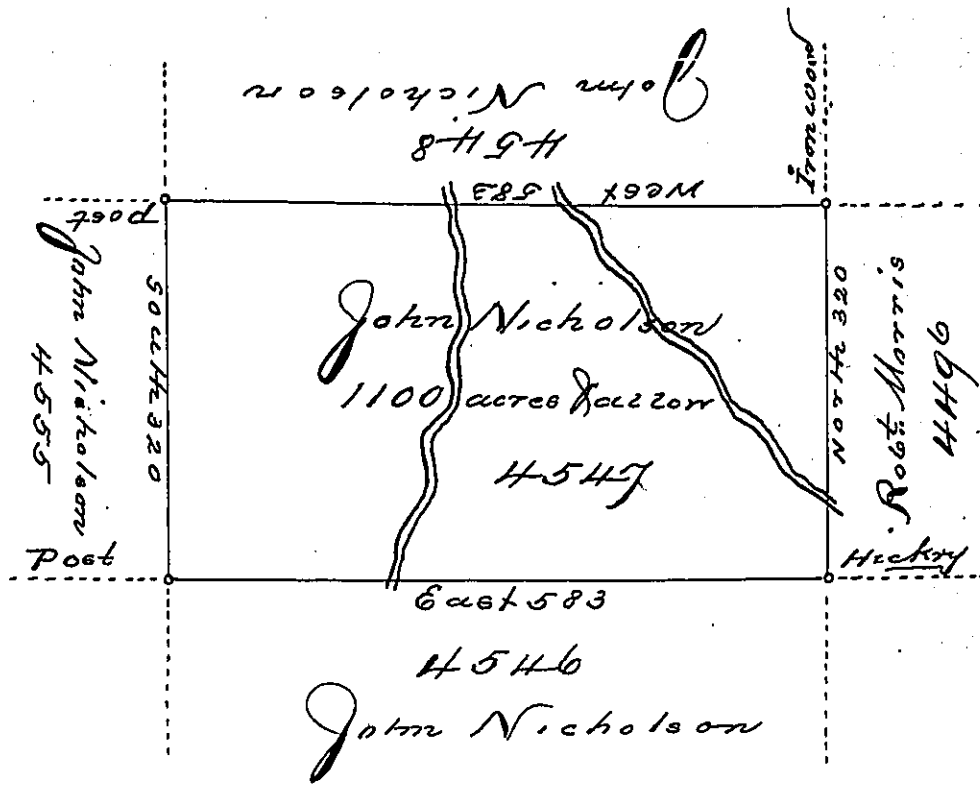 John Nicholson
4548
West 583
Ironwood
Post
John Nicholson
4555
South 320
John Nicholson
1100 acres & allow
4547
North 320
Robt Morris
4496
Post
Hickry
East 583
4546
John Nicholson